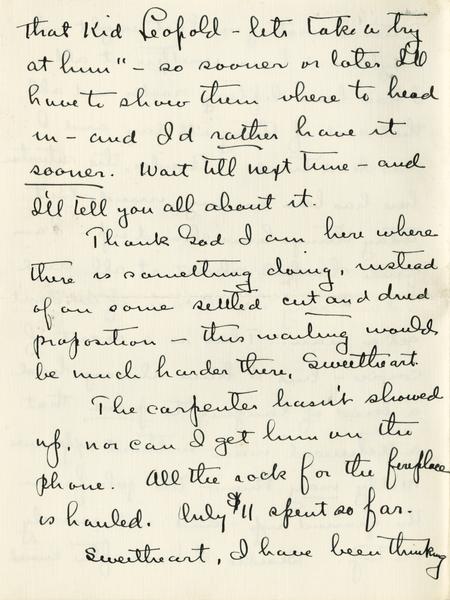 that Kid Leopold - lets take a try
at him" - so sooner or later I'll
have to show them where to head
in - and I'd rather have it
sooner. Wait till next time - and
I'll tell you all about it.
Thank God I am here where
there is something doing, instead
of on some settled cut and dried
proposition - this waiting would
be much harder there, Sweetheart.
The carpenter hasn't showed
up, nor can I get him on the
phone. All the rock for the fireplace
is hauled. Only $11 spent so far.
Sweetheart, I have been thinking